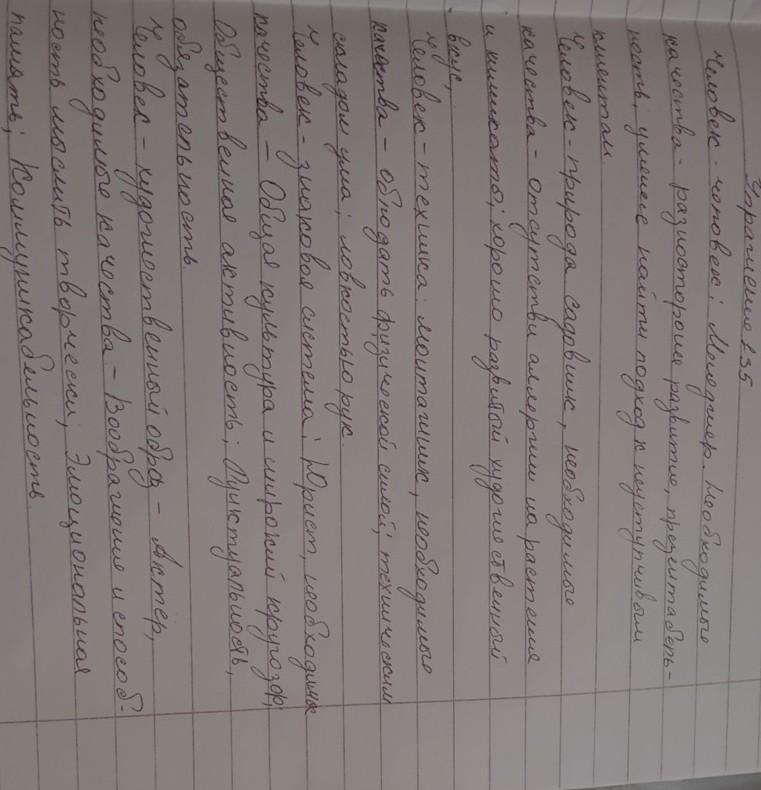 Упражнение 235
Человек - человек: Менеджер. Необходимые
качества - разностороннее развитие, презентабель-
ность, умение найти подход к неуступчивым
клиентам.
Человек - природа садовник, необходимые
качества - отсутствии аллергии на растения
и химикаты; хорошо развитый художественный
вкус,
Человек - техника: монтажник, необходимые
качества - обладать физической силой; техническим
складом ума; ловкостью рук.
Человек - знаковая система; Юрист, необходимые
качества - Общая культура и широкий кругозор;
Общественная активность; Пунктуальность,
обязательность
Человек - художественный образ - Актёр,
необходимые качества - Воображение и способ-
ность мыслить творчески; Эмоциональная
память; Коммуникабельность.